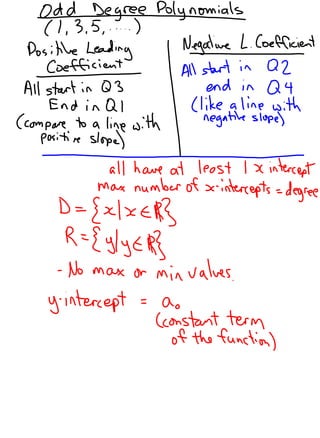 Odd Degree Polynomials
(1, 3, 5, .....)
Positive Leading
Coefficient
All start in Q3
End in Q1
(compare to a line with
positive slope)
Negative L. Coefficient
All start in Q2
end in Q4
(like a line with
negative slope)
all have at least 1 x intercept
max number of x-intercepts = degree
D = {x|x∈ℝ}
R = {y|y∈ℝ}
- No max or min values.
y-intercept = a₀
(constant term
of the function)